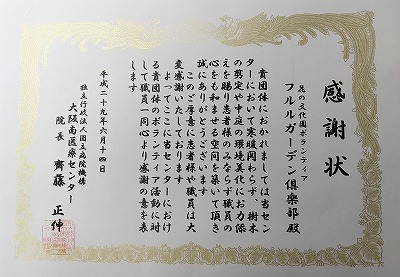 感謝状
花の文化園ボランティア
フルルガーデン倶楽部殿
貴団体におかれましては当セン
ターにおいて寒暖問わらず、樹木
の剪定や中庭の環境美化にお力添
えを賜り患者様のみならず職員の
心をも和ませる空間を築いて頂き
誠にありがとうございます
このご厚意に患者様や職員は大
変感謝いたしております
よってここに当センターにおけ
る貴団体のボランティア活動に対
して職員一同心より感謝の意を表
します
平成二十九年六月十四日
独立行政法人国立病院機構
大阪南医療センター
院長 齊藤正伸